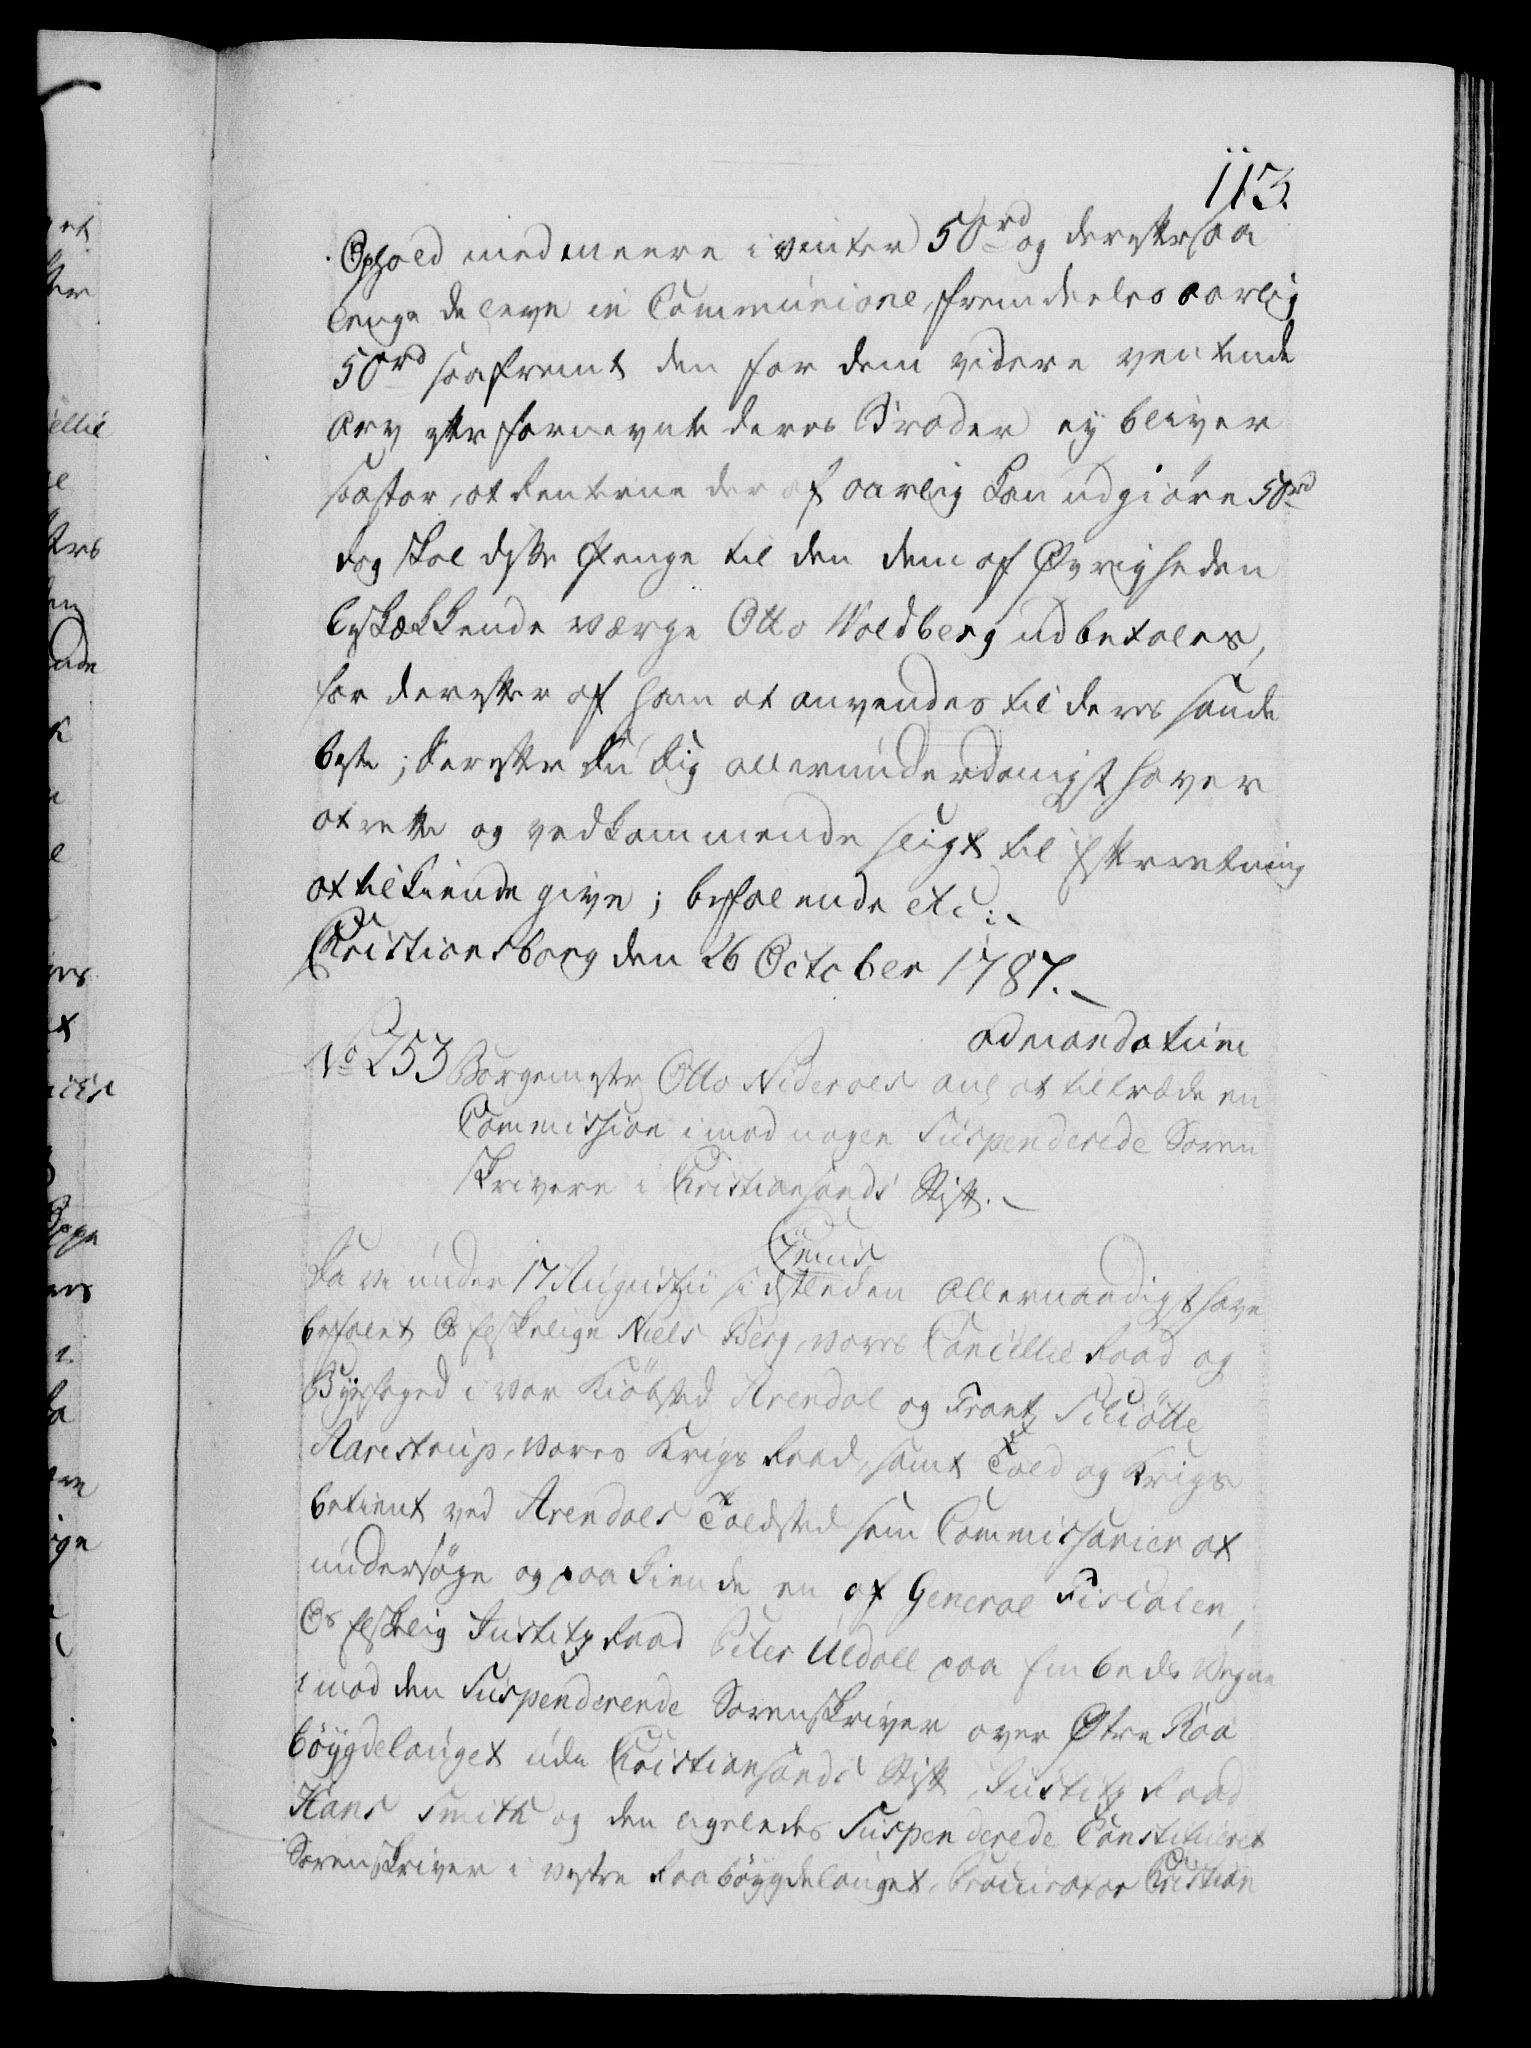 113.
Ophold med meere i vinter 50rd og derefter saa
lenge de leve in Communione, fremdeeles aarlig
50rd saafremt den for dem videre ventende
Arv efter fornevnte deres Broder ey bliver
saa stor, at Renterne der af aarlig kan udgiöre 50rd
dog skal disse Penge til den dem af Øvrigheden
beskikkende Værge Otto Woldberg udbetales,
for derefter af ham at anvendes til deres sande
beste; derefter du dig allerunderdanigst haver
at rette og vedkommende sligt til Efterretning
at tilkiende give; befalende etc:
Christiansborg den 26 October 1787.
ad mandatum
No 253 Borgemester Otto Nideroes ang at tiltræde en
Commission imod nogen Suspenderede Soren
skrivere i Christiansands Stift.
C 7mus
Da vi under 17 Augustii sidstleden allernaadigst have
befalet Os elskelige Niels Berg, vores Cancellie Raad og
Byefoged i vor Kiöbsted Arendal og Frantz Schiötte
Aarestrup, vores Krigs Raad, samt Told og Krigs
betient ved Arendals Toldsted som Commissarier at
undersöge og paa kiende en af General Fiscalen,
Os elskelig Justitz Raad Peter Uldall paa Embeds Vegne
imod den Suspenderende Sorenskriver over Østre Raa
böygdelauget udi Christiansands Stift Justitz Raad
Hans Smith og den ligeledes Suspenderede Constitueret
Sorenskriver i vestre Raaböygdelauget, Procurator Christian